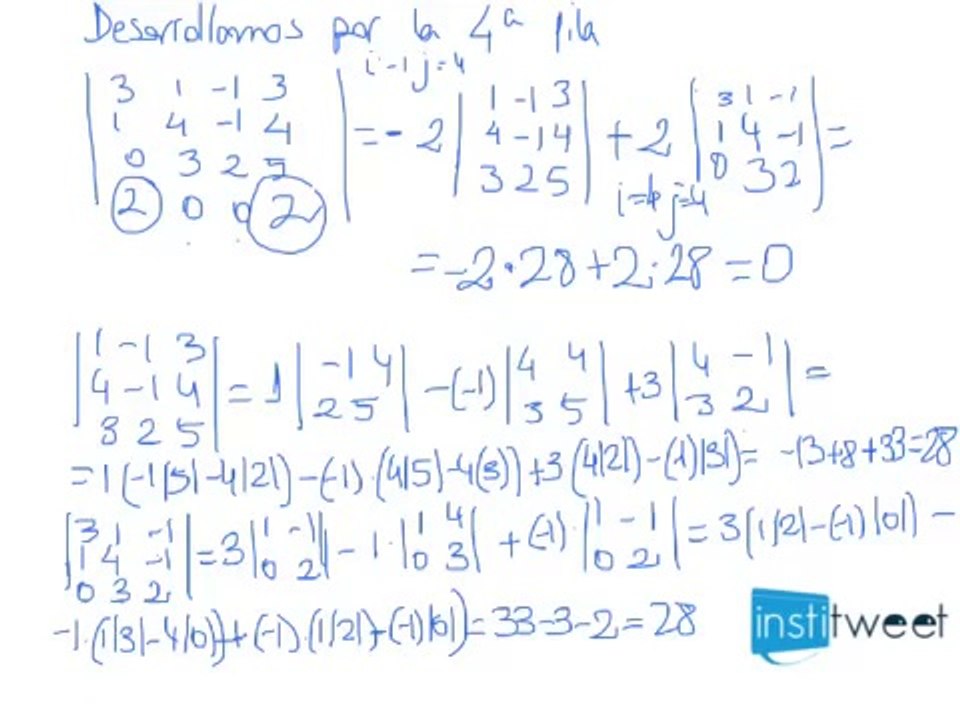 Desarrollamos por la 4ª fila
i=1 j=4
| 3 1 -1 3 |
| 1 4 -1 4 |
| 0 3 2 5 |
| 2 0 0 2 |
= - 2
| 1 -1 3 |
| 4 -1 4 |
| 3 2 5 |
+ 2
| 3 1 -1 |
| 1 4 -1 |
| 0 3 2 |
=
i=4 j=4
= -2·28+2·28 = 0
| 1 -1 3 |
| 4 -1 4 |
| 3 2 5 |
= 1
| -1 4 |
| 2 5 |
-(-1)
| 4 4 |
| 3 5 |
+3
| 4 -1 |
| 3 2 |
=
=1(-1|5|-4|2|)-(-1)·(4|5|-4(3))+3(4|2|-(-1)|3|)= -13+8+33=28
| 3 1 -1 |
| 1 4 -1 |
| 0 3 2 |
= 3
| 1 -1 |
| 0 2 |
- 1·
| 1 4 |
| 0 3 |
+ (-1)·
| 1 -1 |
| 0 2 |
= 3(1|2|-(-1)|0|) -
-1·(1|3|-4|0|)+(-1)·(1|2|+(-1)|0|)= 33-3-2=28
institweet